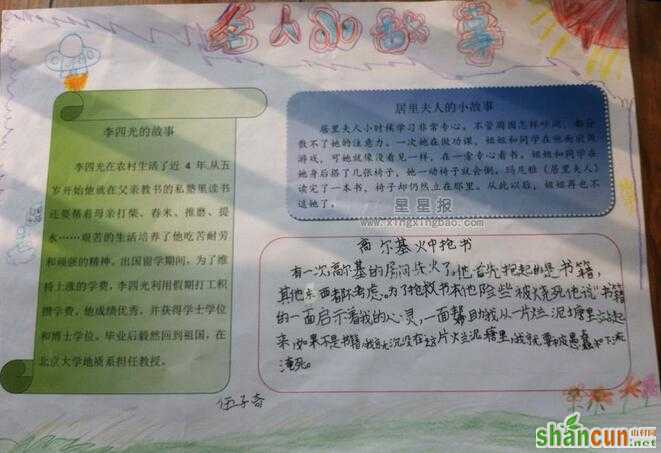 名人的故事
李四光的故事
李四光在农村生活了近 4 年,从五
岁开始他就在父亲教书的私塾里读书
还要帮着母亲打柴、舂米、推磨、提
水……艰苦的生活培养了他吃苦耐劳
和顽强的精神。出国留学期间,为了维
持上涨的学费,李四光利用假期打工积
攒学费。他成绩优秀,并获得学士学位
和博士学位。毕业后毅然回到祖国,在
北京大学地质系担任教授。
居里夫人的小故事
居里夫人小时候学习非常专心。不管周围怎样吵闹,都分
散不了她的注意力。一次她在做功课,姐姐和同学在她面前做
游戏,可她就像没看见一样,在一旁专心看书。姐姐和同学在
她身后搭了几张椅子,她一动椅子就会倒。玛尼雅(居里夫人)
读完了一本书,椅子却仍然立在那里。从此以后,姐姐再也不
逗她了。
星星报
www.xingxingbao.com
高尔基火中抢书
有一次,高尔基的房间失火了,他首先抱起的是书籍,
其他东西都不考虑。为了抢救书本他险些被烧死他说“书籍
的一面启示着我的心灵,一面帮助我从一片烂泥塘里
来,如果不是书籍,我就沉没在这片烂泥塘里,我就要被愚蠢和下流
淹死。
伍子奇
shancun
山村网
.net